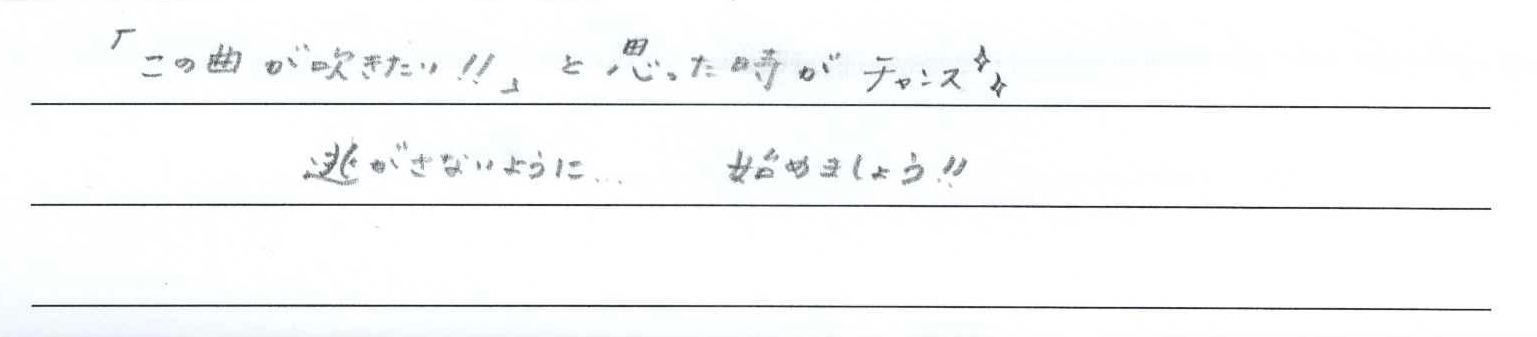 「この曲が吹きたい!!」と思った時がチャンス✨
逃がさないように… 始めましょう!!